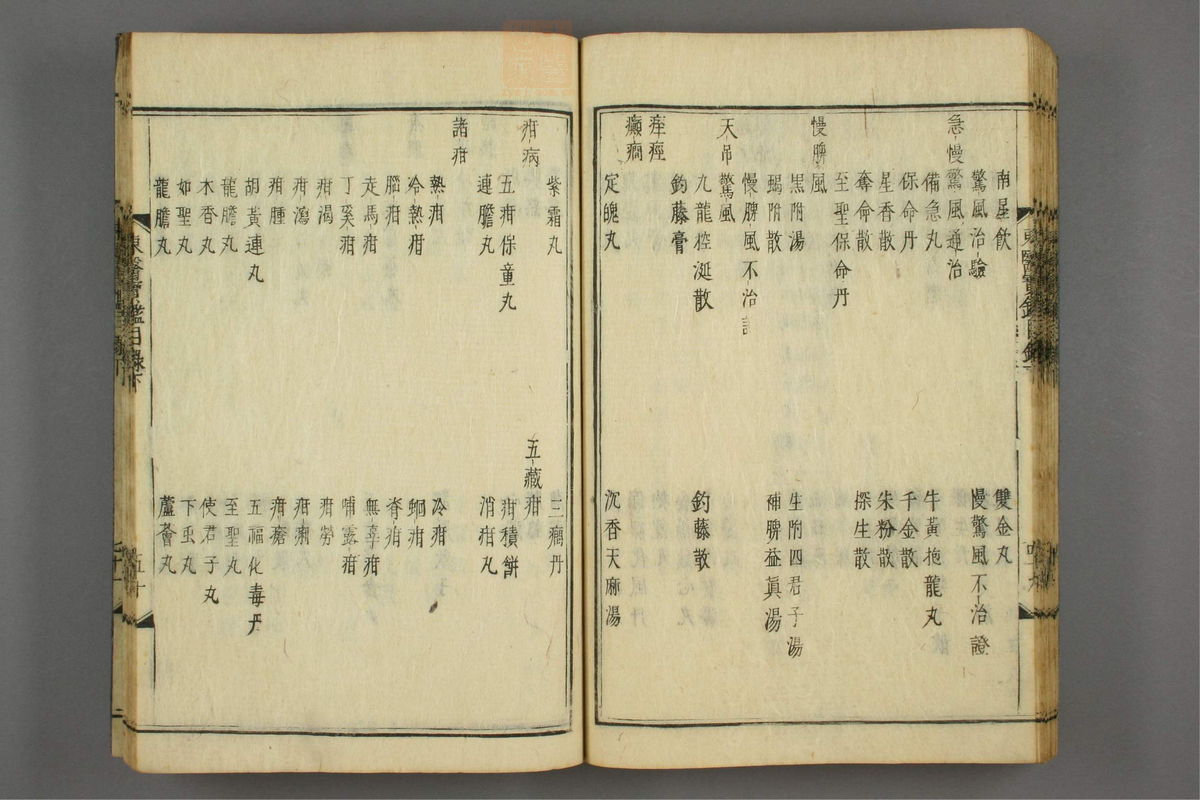 南星飮　雙金丸
驚風治驗　慢驚風不治證
急慢驚風通治
備急丸　牛黃抱龍丸
保命丹　千金散
星香散　朱粉散
奪命散　探生散
至聖保命丹
慢脾風
黑附湯　生附四君子湯
蝎附散　補脾益眞湯
慢脾風不治證
天吊驚風
九龍控涎散　釣藤散
釣藤膏
痓痙
癲癎
定魄丸　沉香天麻湯
紫霜丸　三癎丹
疳病　五藏疳
五疳保童丸　疳積餠
連膽丸　消疳丸
諸疳
熱疳　冷疳
冷熱疳　蛔疳
腦疳　脊疳
走馬疳　無辜疳
丁奚疳　哺露疳
疳渴　疳勞
疳瀉　疳痢
疳腫　疳瘡
胡黃連丸　五福化毒丹
龍膽丸　至聖丸
木香丸　使君子丸
如聖丸　下虫丸
龍膽丸　蘆薈丸
東醫寶鑑目錄下
五十